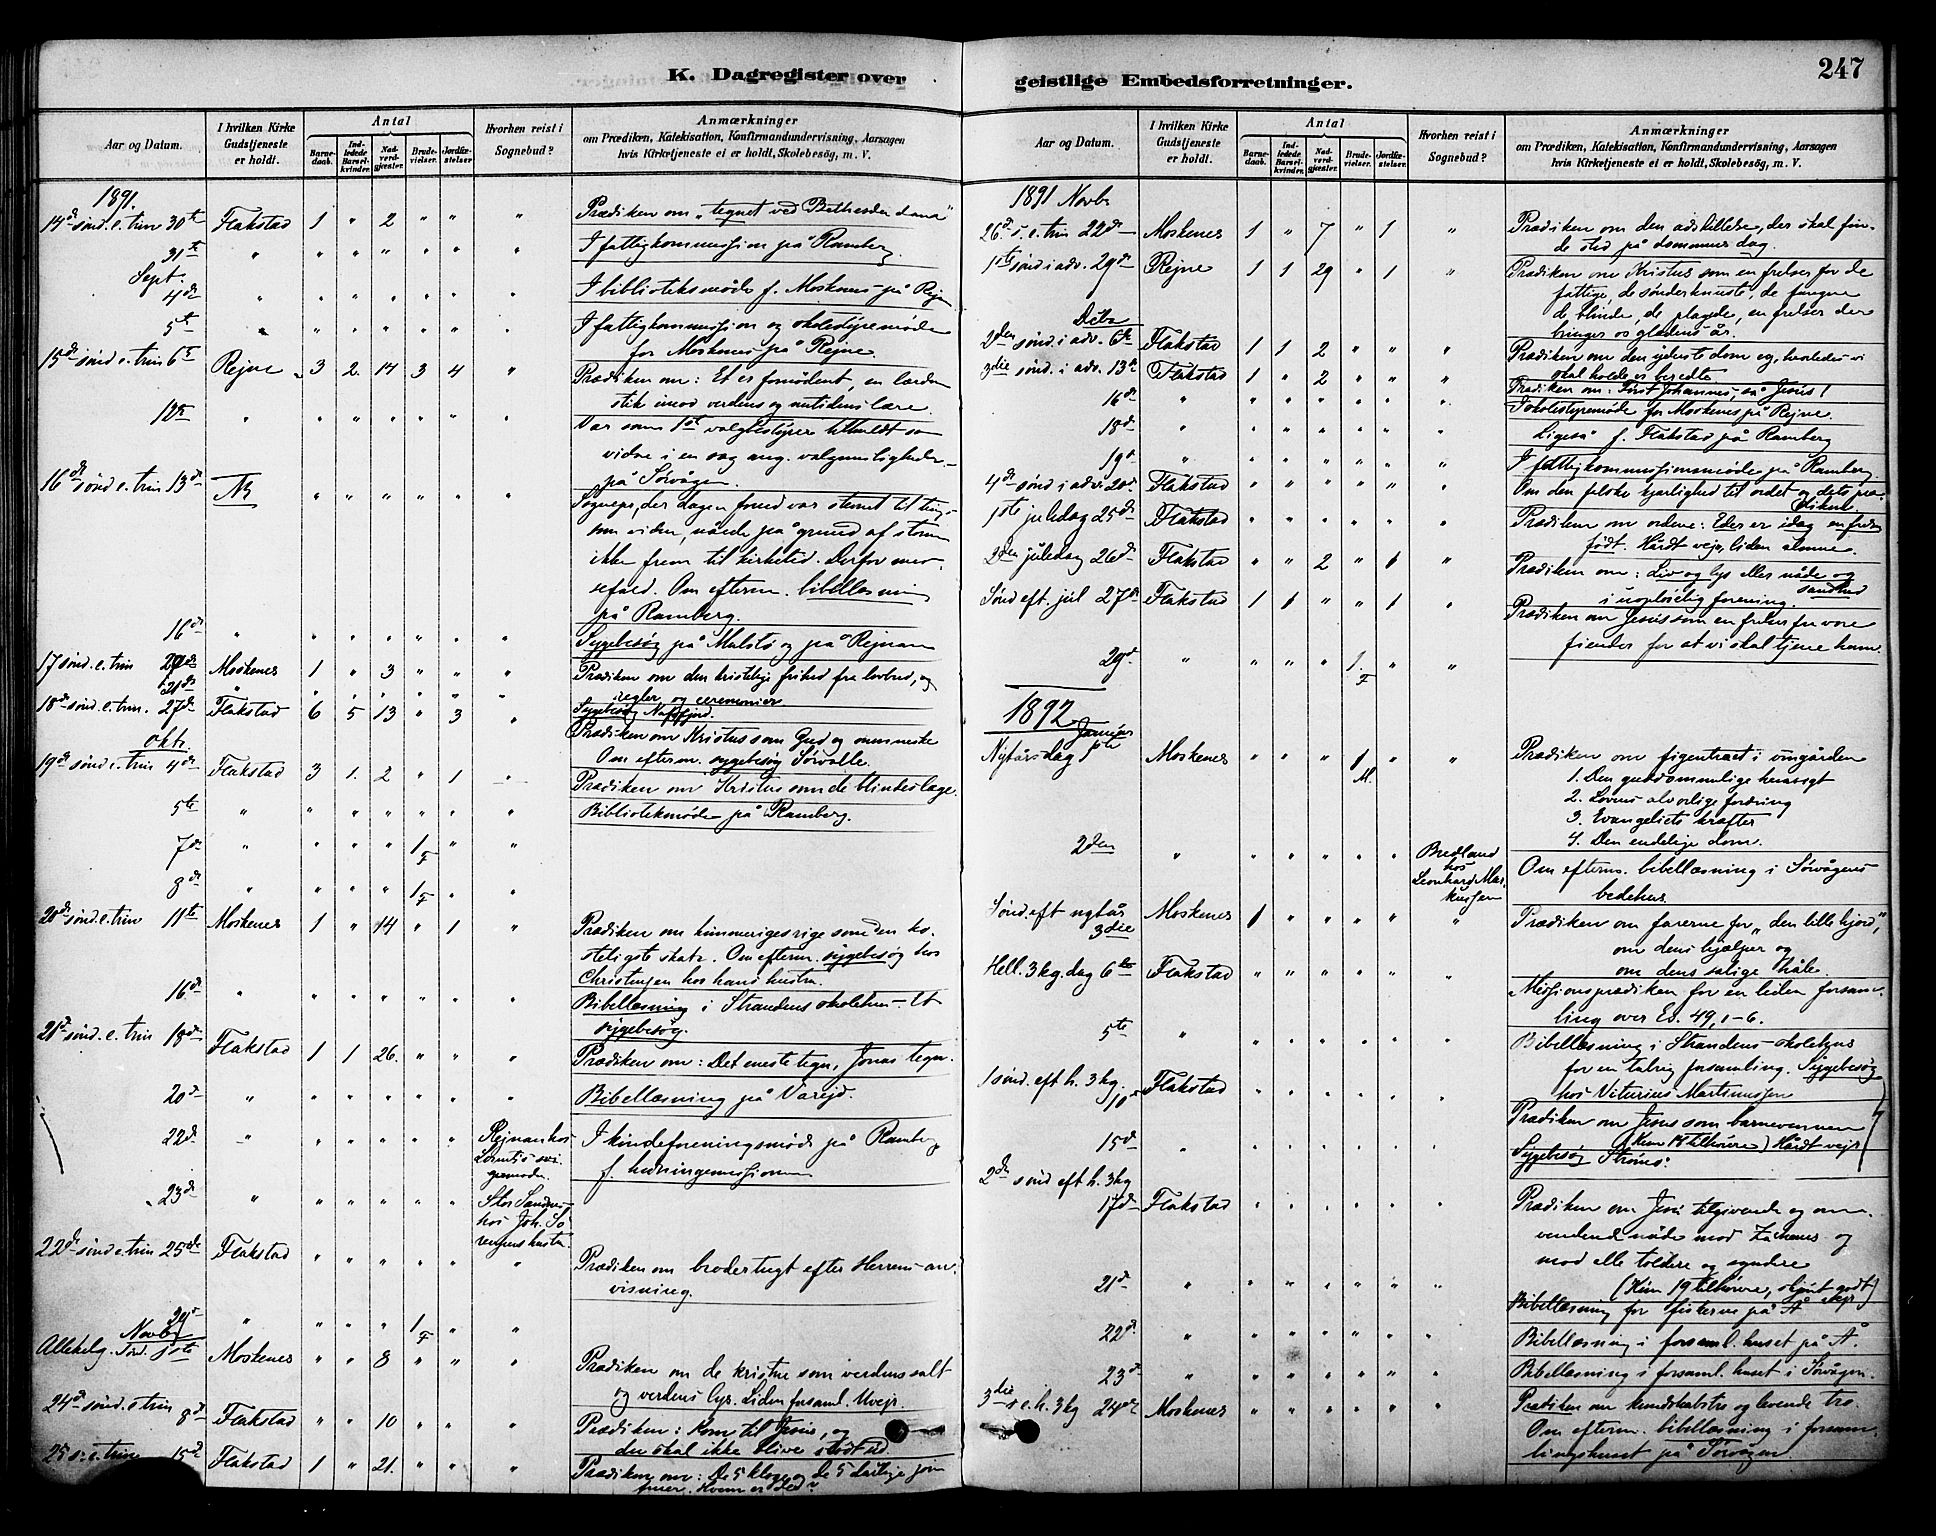 K. Dagregister over
geistlige Embedsforretninger.
247
Aar og Datum.
I hvilken Kirke Gudstjeneste er holdt.
Antal
Barnedaab.
Indledede Barselkvinder.
Nadverdgjester.
Brudevielser.
Jordfæstelser
Hvorhen reist i Sognebud?
Anmærkninger
om Prædiken, Katekisation, Konfirmandundervisning, Aarsagen
hvis Kirketjeneste ei er holdt, Skolebesøg, m. V.
1891.
14de sønd. e. trin 30te Flakstad 1 " 2 " " " Prædiken om "tegnet ved Bethesda dam"
31te " " " " " " " I fattigkommission på Ramberg.
Sept.
4de " " " " " " " I biblioteksmøde f. Moskenes på Rejne
5te " " " " " " " I fattigkommission og skolestyremøde
for Moskenes på Rejne.
15de sønd e. trin 6te Rejne 3 2 17 3 4 " Prædiken om: Et er fornødent, en lærdom
stik imod verdens og nutidens lære.
12te " " " " " " " Var som 1ste valgbestyrer tilkaldt som
vidne i en sag ang. valgumuligheder
på Sørvågen.
16de sønd e. trin 13de NB " " " " " " Sognepr., der dagen forud var stevnet til tings
som vidne, nåede på grund af storm
ikke frem til kirketid. Derfor messefald. Om efterm. bibellæsning
på Ramberg.
16de " " " " " " " Sygebesøg på og på Rejnan
17 sønd. e. trin 20de Moskenes 1 " 3 " " " Prædiken om den kristelige frihed fra lovbud, og
regler og ceremonier
21de " " " " " " Sygebesøg Napfjord.
18de sønd. e. trin. 27de Flakstad 6 5 13 " 3 " Prædiken om Kristus som Gud og menneske
Om efterm. sygebesøg
Okt.
19de sønd e. trin 4de Flakstad 3 1. 2 " 1 " Prædiken om Kristus som de blindes læge.
5te " " " " " " " Biblioteksmøde på Ramberg.
7de " " " " 1 F " "
8de " " " " 1 F " "
20de sønd. e. trin 11te Moskenes 1 " 14 " 1 " Prædiken om himmerigesrige som den kosteligste skat. Om efterm. sygebesøg hos
hos hans hustru.
16de " " " " " " " Bibellæsning i Strandens skolehus – Et
sygebesøg.
21de sønd. e. trin 18de Flakstad 1 1 26. " " " Prædiken om: Det eneste tegn, Jonas tegn.
20de " " " " " " " Bibellæsning på Varejd.
22de " " " " " " Rejnan hos I kvindeforeningsmøde på Ramberg
svigermoder f. hedningemissionen
23de " " " " " " Stor Sandnes
hos Joh. Sørensens hustru.
22de sønd e trin 25de Flakstad " " " " " " Prædiken om brodertugt efter Herrens anvisning.
29de " " " " 1 F " "
Novbr
Allehelg. sønd. 1ste Moskenes " " 8 " " " Prædiken om de kristne som verdens salt
og verdens lys. Liden forsaml. Uvejr.
24de sønd. e trin 8de Flakstad " " 10 " " " Prædiken: Kom til Jesus, og
du skal ikke blive stødt ud.
25 s. e. trin 15de Flakstad 1 " 21. " " " Prædiken om: De 5 kloge og de 5 dårlige jomfruer. Hvem er du?
Aar og Datum.
I hvilken Kirke Gudstjeneste er holdt.
Antal
Barnedaab.
Indledede Barselkvinder.
Nadverdgjester.
Brudevielser.
Jordfæstelser.
Hvorhen reist i Sognebud?
Anmærkninger
om Prædiken, Katekisation, Konfirmandundervisning, Aarsagen
hvis Kirketjeneste ei er holdt, Skolebesøg, m. V.
1891 Novbr
26de s. e. trin 22de Moskenes 1 " 7 " 1 " Prædiken om den adskillelse, der skal finde sted på dommens dag.
1ste sønd i adv. 29de Rejne 1 1 29 " 1 " Prædiken om Kristus som en frelser for de
fattige, de sønderknuste, de fangne
de blinde, de plagede, en frelser der
bringer os glædens år.
Decbr
2den sønd. i adv. 6te Flakstad 1 1 2 " " " Prædiken om den yderste dom og, hvorledes vi
skal holde os beredte
3die sønd. i adv. 13de Flakstad 1 " 2 " " " Prædiken om: Først Johannes, så Jesus!
16de " " " " " " " I skolestyremøde for Moskenes på Rejne.
18de " " " " " " " Ligeså f. Flakstad på Ramberg
19de " " " " " " " I fattigkommissionsmøde på Ramberg
4de sønd i adv. 20de Flakstad " " " " " " Om den falske kjærlighed til ordet og dets prædikant
1ste juledag 25de Flakstad " " " " " " Prædiken om ordene: Eder er idag en frelser
født. Hårdt vejr, liden almue.
2den juledag 26de Flakstad " " 2 " 1 " Prædiken om: Liv og lys eller nåde og
sandhed
i uopløselig forening.
Sønd eft. jul 27de Flakstad 1 1 " " 1 " Prædiken om Jesus som en frelser fra vore
fiender for at vi skal tjene ham.
29de " " " " 1. F " "
1892
Januar
Nytårsdag 1ste Moskenes " " " 1 M. " " Prædiken om figentræet i vingården
1. Den guddommelige hensigt
2. Lovens alvorlige fordring
3. Evangeliets kræfter
4. Den endelige dom.
2den " " " " " " Bredland Om efterm. bibellæsning i Sørvågens
hos bedehus.
Leonhard Markussen
Sønd. eft nytår 3die Moskenes 1 " " " " " Prædiken om farerne for "den lille hjord,"
om dens hjælper og
om dens salige håb.
Hell. 3 kg. dag 6te Flakstad " " " " " " Missionsprædiken for en liden forsamling over Es. 49, 1-6.
5te " " " " " " " Bibellæsning i Strandens skolehus
for en talrig forsamling. Sygebesøg
hos Martinussen
1 sønd. eft h. 3 kg. 10de Flakstad " " " " " " Prædiken om Jesus som barnevennen
(Kun 18 tilhørere) Hårdt vejr
15de " " " " " " " Sygebesøg Strøms:
2de sønd eft h. 3 kg
17de Flakstad " " " " " " Prædiken om Jesu tilgivende og omvendende nåde mod Zachæus og
mod alle toldere og syndere
(Kun 19 tilhørere, skjønt godt vejr)
21de " " " " " " " Bibellæsning for fiskerne på Å
22de " " " " " " " Bibellæsning i forsaml. huset på Å.
23de " " " " " " " Bibellæsning i forsaml. huset i Sørvågen.
3die s. e. h. 3 kg 24de Moskenes " " " " " " Prædiken om kundskabstro og levende tro.
Om efterm. bibellæsning i forsamlingshuset på Sørvågen.